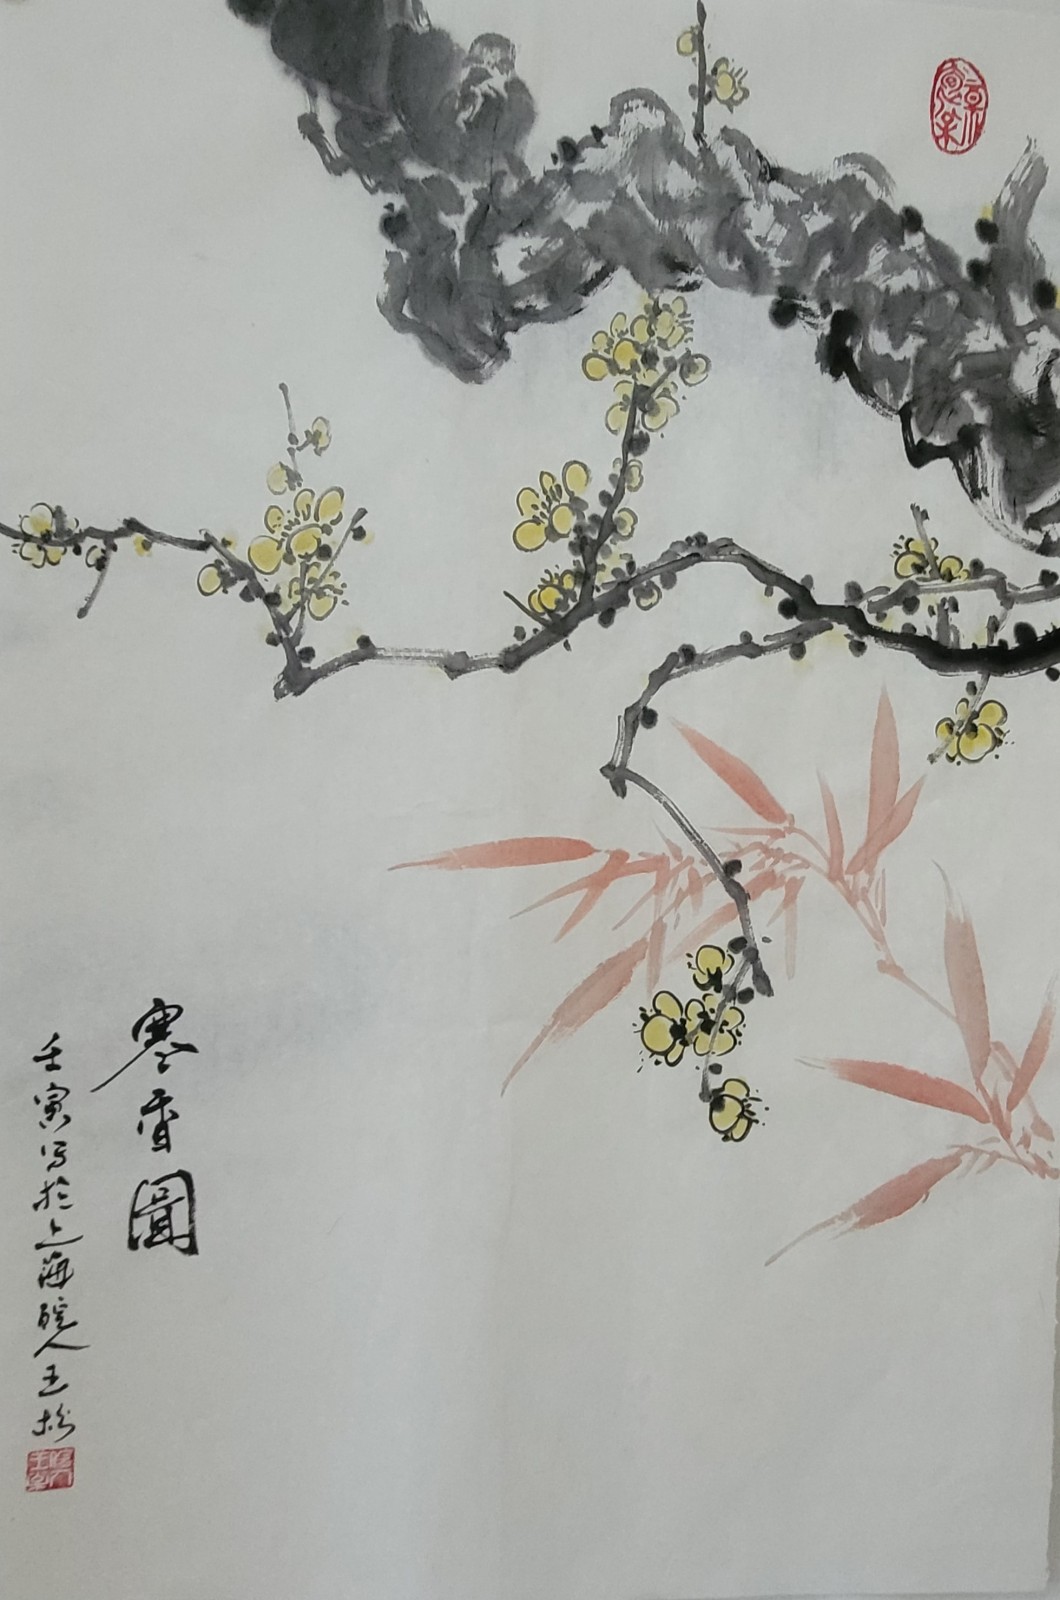 寒香圖
壬寅写於上海皖人王松